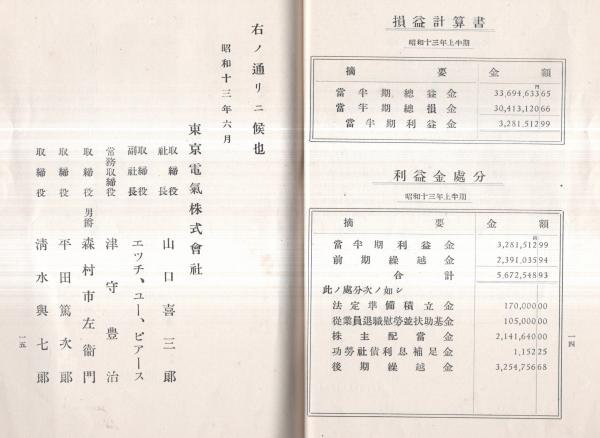 損益計算書
昭和十三年上半期
摘要 金額
円
當半期總益金 33,694,633 65
當半期總損金 30,413,120 66
當半期利益金 3,281,512 99
利益金處分
昭和十三年上半期
摘要 金額
円
當半期利益金 3,281,512 99
前期繰越金 2,391,035 94
合計 5,672,548 93
此ノ處分次ノ如シ
法定準備積立金 170,000 00
從業員退職慰勞並扶助基金 105,000 00
株主配當金 2,141,640 00
功勞社債利息補足金 1,152 25
後期繰越金 3,254,756 68
一四
右ノ通リニ候也
昭和十三年六月
東京電氣株式會社
取締役社長 山口喜三郎
取締役副社長 エツチ、ユー、ピアース
常務取締役 津守豊治
取締役 男爵 森村市左衞門
取締役 平田篤次郎
取締役 清水與七郎
一五